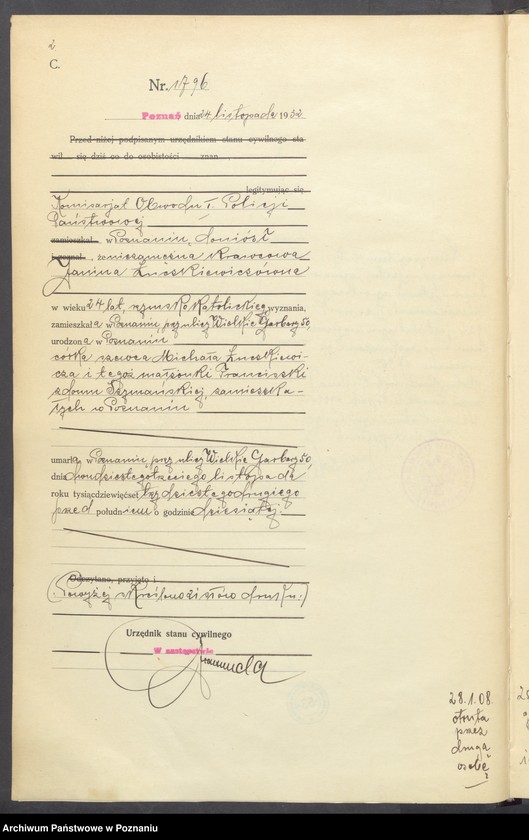 2
C.
Nr. 1796
Poznań dnia 24 listopada 1932
Przed niżej podpisanym urzędnikiem stanu cywilnego sta
wił się dziś co do osobistości znan
legitymując się
Komisarjat Obwodu I. Policji
Państwowej
zamieszkał w Poznaniu, doniósł
i zeznał, że niezamężna krawcowa
Janina Łuczkiewiczówna
w wieku 24 lat, rzymsko katolickiego wyznania,
zamieszkała w Poznaniu, przy ulicy Wielkie Garbary 50
urodzona w Poznaniu
córka szewca Michała Łuczkiewi-
cza i tegoż małżonki Franciszki
z domu Szymańskiej zamieszka-
łych w Poznaniu
umarła w Poznaniu, przy ulicy Wielkie Garbary 50
dnia dwudziestego trzeciego listopada
roku tysiącdziewięćset trzydziestego drugiego
przed południem o godzinie dziesiątej.
Odczytano, przyjęto i
(Powyżej skreślono słów druku.)
Urzędnik stanu cywilnego
W zastępstwie
28.1.08.
otruta
przez
drugą
osobę
?
Archiwum Państwowe w Poznaniu